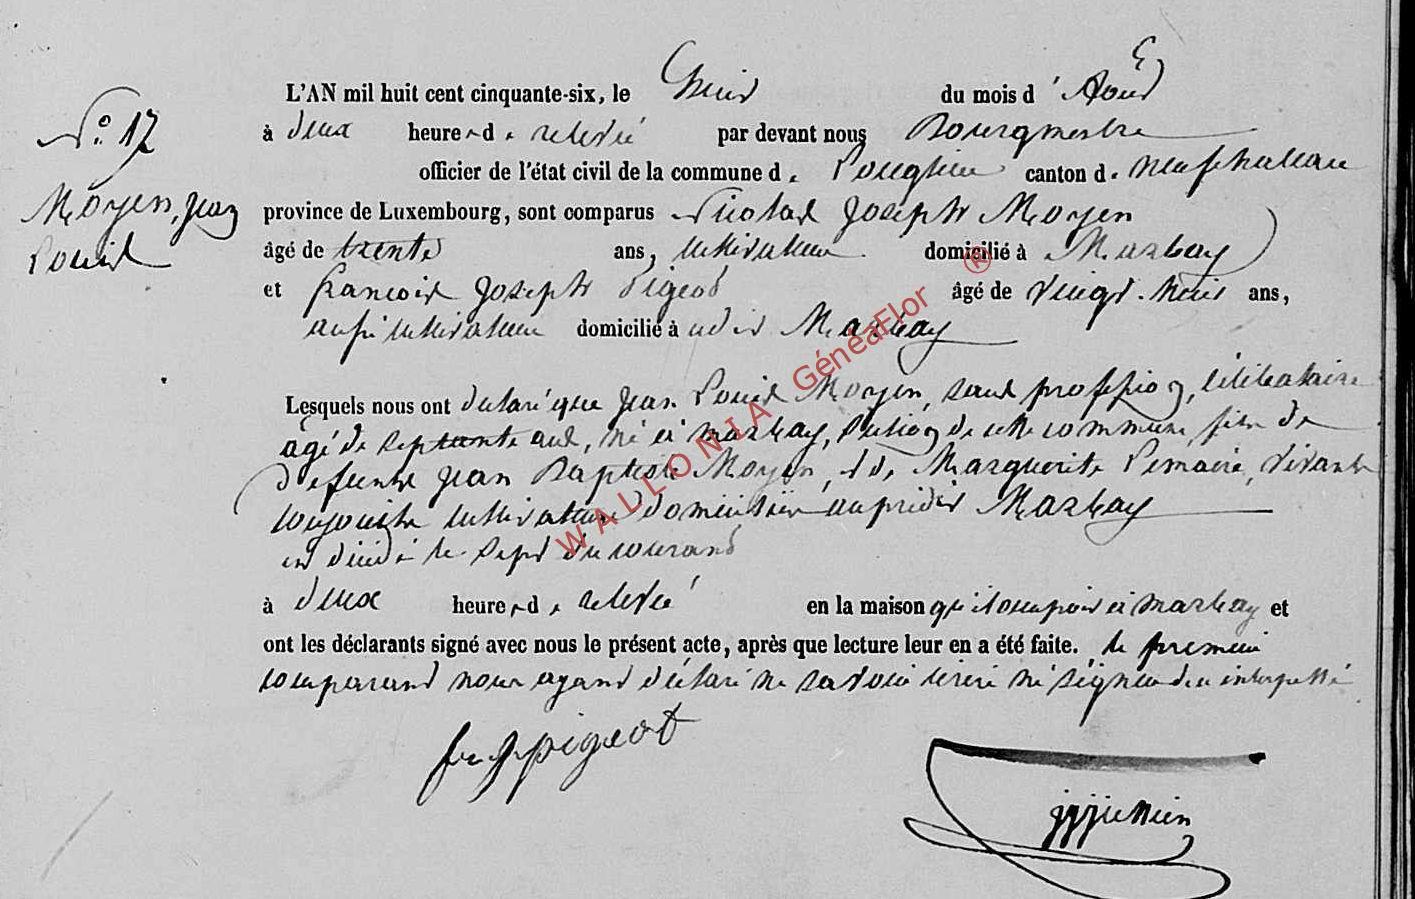 N.° 17
Moyen, Jean
Louis
L'AN mil huit cent cinquante-six, le huit du mois d'Août
à deux heures de relevée par devant nous Bourgmestre
officier de l'état civil de la commune de Longlier canton de Neufchateau
province de Luxembourg, sont comparus Nicolas Joseph Moyen
âgé de trente ans, cultivateur domicilié à Marbay
et francois Joseph Pigeot âgé de vingt-huit ans,
aussi cultivateur domicilié à udit Marbay
Lesquels nous ont déclaré que Jean Louis Moyen, sans profession, célibataire
âgé de septante ans, né à Marbay, section de cette commune, fils de
defunts Jean Baptiste Moyen, et de Marguerite Lemaire, vivants
conjoints cultivateurs domiciliés au prédit Marbay
est décédé le sept du courant
à deux heures de relevée en la maison qu'il occupoit à Marbay et
ont les déclarants signé avec nous le présent acte, après que lecture leur en a été faite. le premier
comparant nous ayant déclaré ne savoir écrire ni signer de ce interpellé
pigeot
WALLONIA GénéaFlor ®